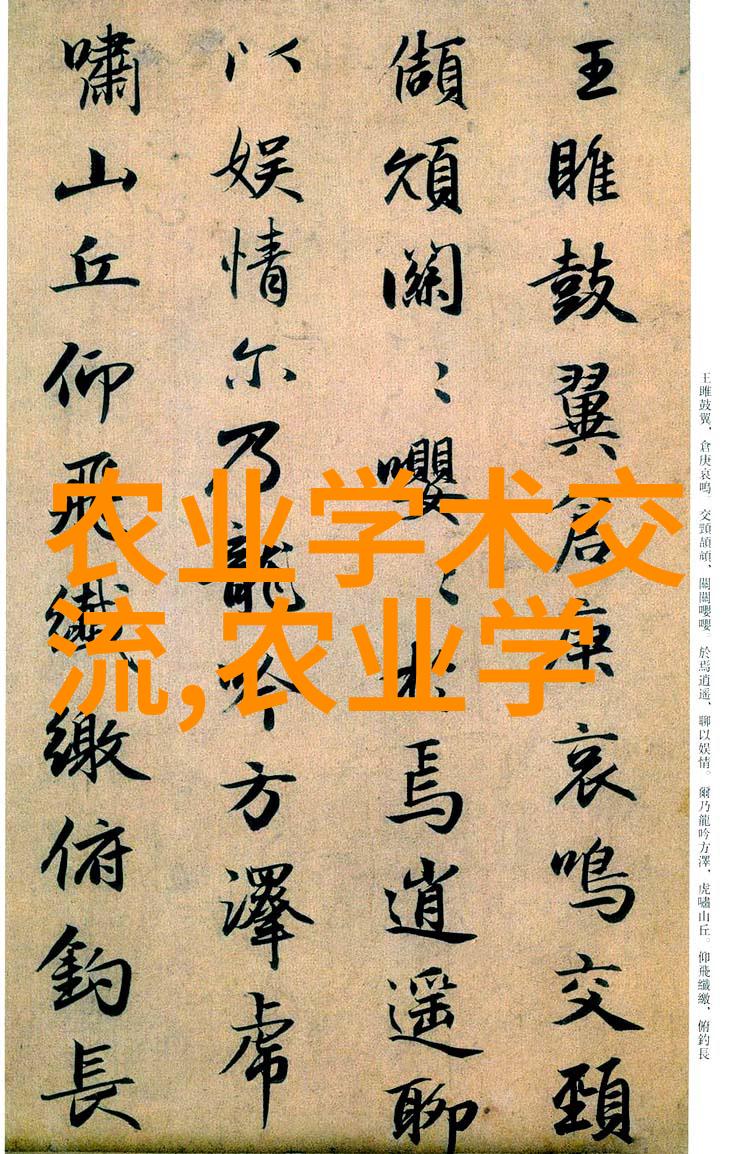 农业学术交
流,农业学
王雎鼓翼倉庚哀鳴交頸
頡頏關〻嚶〻於焉逍遥聊
以娱情尔乃龍吟方澤虎
嘯山丘仰飛纖繳俯釣長
王雎鼓翼,倉庚哀鳴。交頸頡頏,關關嚶嚶。於焉逍遥,聊以娱情。爾乃龍吟方澤,虎嘯山丘。仰飛纖繳,俯釣長